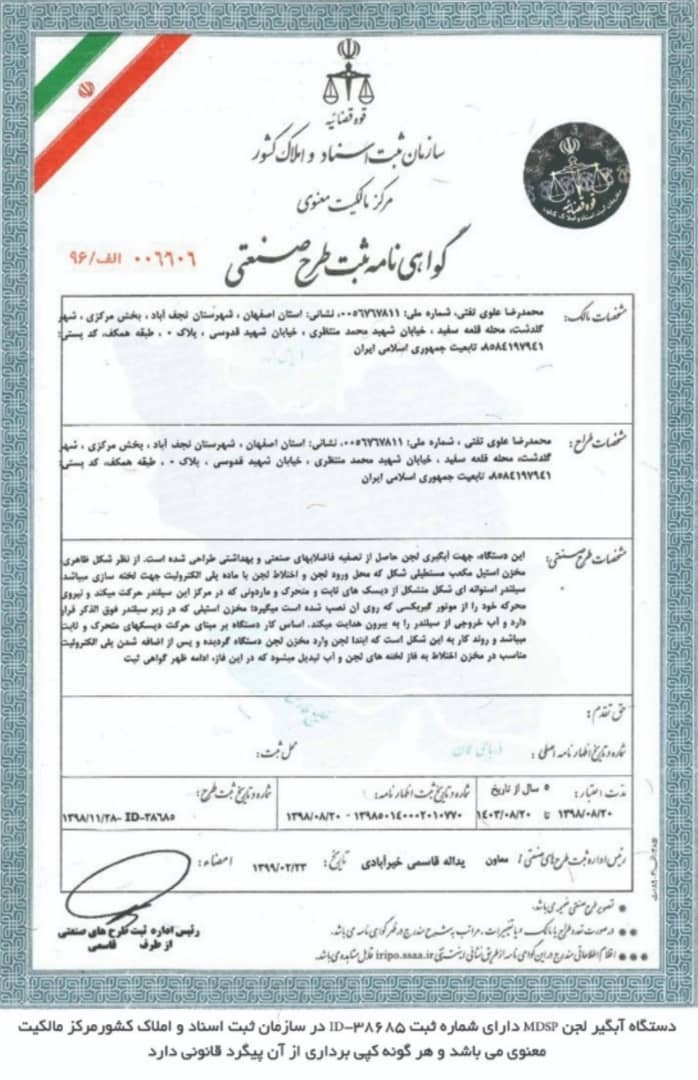 قوه قضائیه
سازمان ثبت اسناد و املاک کشور
مرکز مالکیت معنوی
گواهی نامه ثبت طرح صنعتی
۰۰۶۶۰۶ الف/۹۶
مشخصات مالک: محمدرضا علوی تفتی، شماره ملی: ۰۰۵۶۷۶۷۸۱۱، نشانی: استان اصفهان ، شهرستان نجف آباد ، بخش مرکزی ، شهر
گلدشت، محله قلعه سفید ، خیابان شهید محمد منتظری ، خیابان شهید قدوسی ، پلاک ۰ ، طبقه همکف، کد پستی:
۸۵۸٤۱۹۷۹٤۱، تابعیت جمهوری اسلامی ایران
مشخصات طراح: محمدرضا علوی تفتی ، شماره ملی: ۰۰۵۶۷۶۷۸۱۱، نشانی: استان اصفهان ، شهرستان نجف آباد ، بخش مرکزی ، شهر
گلدشت، محله قلعه سفید ، خیابان شهید محمد منتظری ، خیابان شهید قدوسی ، پلاک ۰ ، طبقه همکف، کد پستی:
۸۵۸٤۱۹۷۹٤۱، تابعیت جمهوری اسلامی ایران
مشخصات طرح صنعتی: این دستگاه، جهت آبگیری لجن حاصل از تصفیه فاضلابهای صنعتی و بهداشتی طراحی شده است. از نظر شکل ظاهری
مخزن استیل مکعب مستطیلی شکل که محل ورود لجن و اختلاط لجن با ماده پلی الکترولیت جهت لخته سازی میباشد.
سیلندر استوانه ای شکل متشکل از دیسک های ثابت و متحرک و ماردونی که در مرکز این سیلندر حرکت میکند و نیروی
محرکه خود را از موتور گیربکسی که روی آن نصب شده است میگیرد؛ مخزن استیلی که در زیر سیلندر فوق الذکر قرار
دارد و آب خروجی از سیلندر را به بیرون هدایت میکند. اساس کار دستگاه بر مبنای حرکت دیسکهای متحرک و ثابت
میباشد و روند کار به این شکل است که ابتدا لجن وارد مخزن لجن دستگاه گردیده و پس از اضافه شدن پلی الکترولیت
مناسب در مخزن اختلاط به فاز لخته های لجن و آب تبدیل میشود که در این فاز، ادامه ظهر گواهی ثبت
حق تقدم:
شماره و تاریخ اظهارنامه اصلی: محل ثبت:
مدت اعتبار: ۵ سال از تاریخ شماره و تاریخ ثبت اظهارنامه: شماره و تاریخ ثبت طرح:
۱۳۹۸/۰۸/۲۰ تا ۱٤۰۳/۰۸/۲۰ ۱۳۹۸/۰۸/۲۰ - ۱۳۹۸۵۰۱٤۰۰۰۲۰۱۰۷۷۰ ۱۳۹۸/۱۱/۲۸- ID-۳۸۶۸۵
رئیس اداره ثبت طرح های صنعتی: معاون یداله قاسمی خیرآبادی تاریخ: ۱۳۹۹/۰۲/۲۳ امضاء:
رئیس اداره ثبت طرح های صنعتی
از طرف قاسمی
تصویر طرح صنعتی ضمیمه می باشد.
در صورت تعدد طراح یا مالک و یا تغییرات، مراتب به شرح مندرج در ظهر گواهی نامه می باشد.
اقلام اطلاعاتی مندرج در این گواهی نامه از طریق نشانی اینترنتی iripo.ssaa.ir قابل مشاهده می باشد.
دستگاه آبگیر لجن MDSP دارای شماره ثبت ID-۳۸۶۸۵ در سازمان ثبت اسناد و املاک کشورمرکز مالکیت
معنوی می باشد و هر گونه کپی برداری از آن پیگرد قانونی دارد